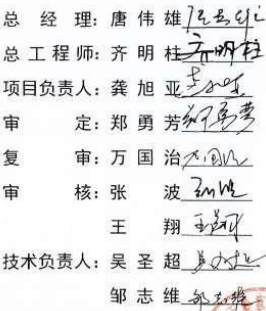 总经理：唐伟雄
总工程师：齐明柱 齐明柱
项目负责人：龚旭亚
审定：郑勇芳
复审：万国治
审核：张波
王翔 王翔
技术负责人：吴圣超
邹志维 邹志维